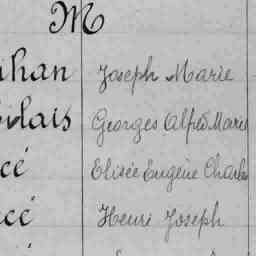 M
han Joseph Marie
lais Georges Alfred Marie
cé Elisée Eugène Charles
cé Henri Joseph